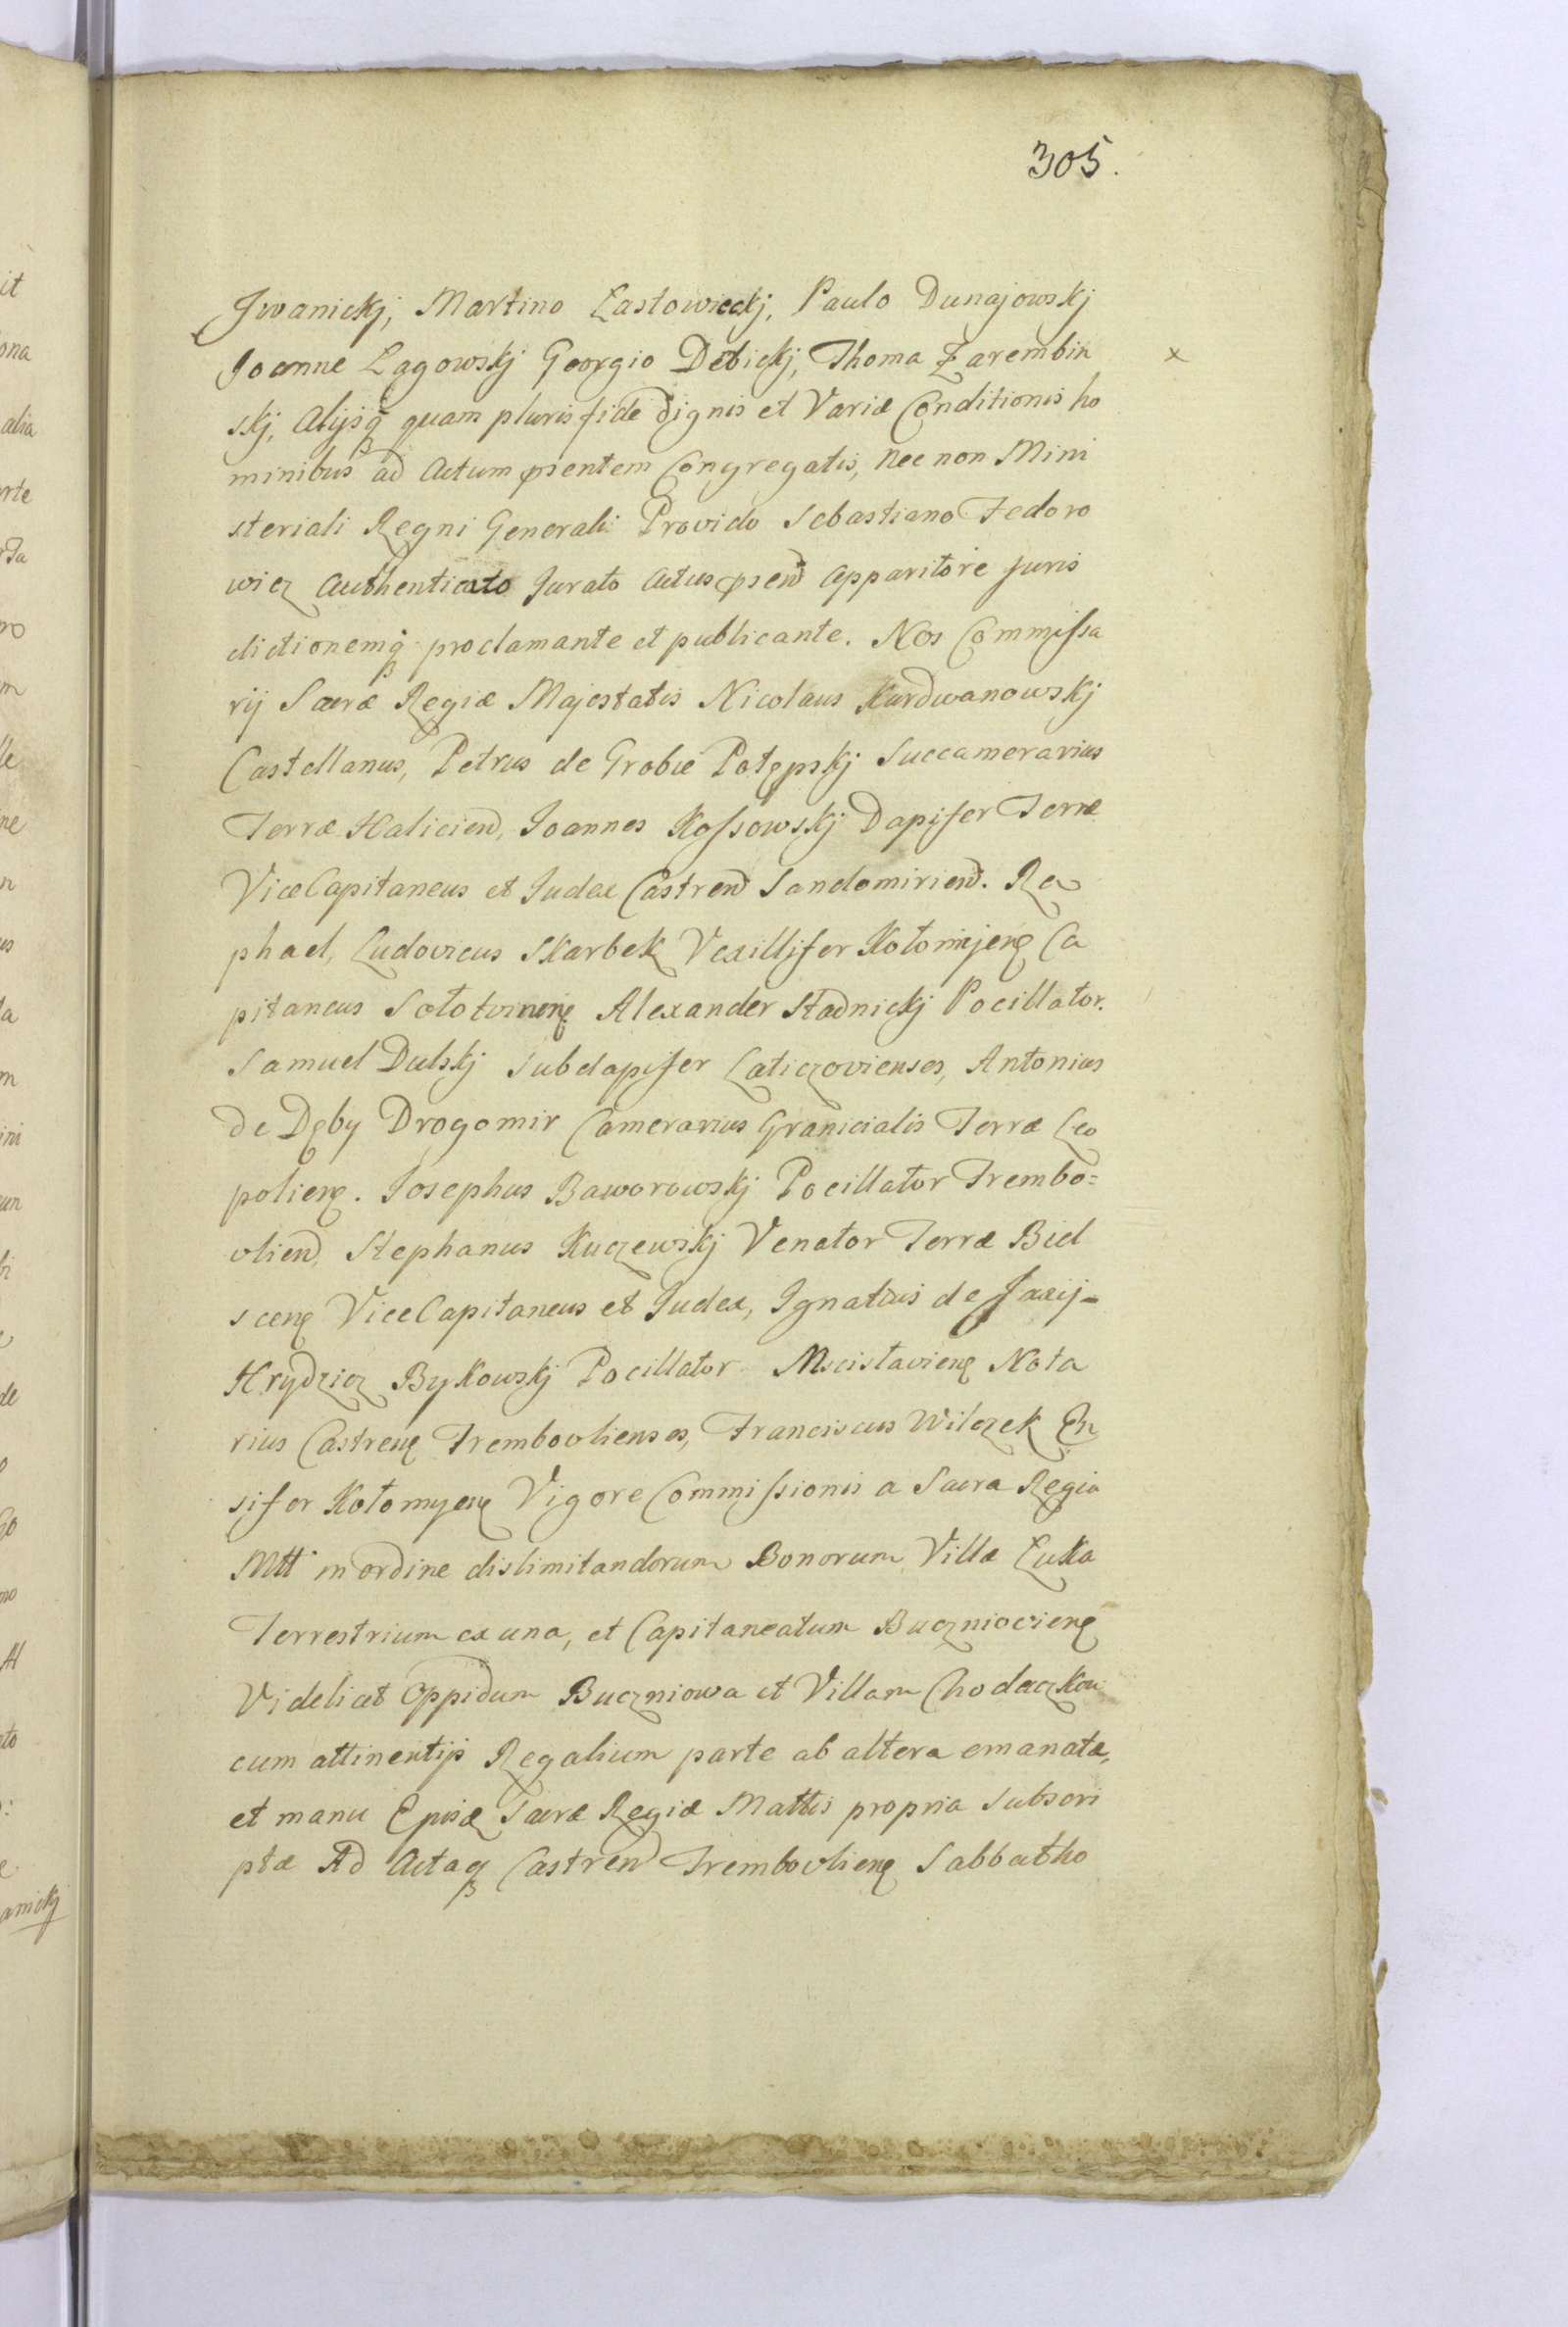 305.
Jwanickj, Martino Łastowieckj, Paulo Dunajowskj
Joanne Łagowskj Georgio Debickj, Thoma Zarembin
skj, Alijsq quam pluris fide dignis et Variæ Conditionis ho
minibus ad Actum psentem Congregatis, nec non Mini
steriali Regni Generali Provido Sebastiano Fedoro
wicz Authenticato Jurato Actus psen Apparitore Juris
dictionemq proclamante et publicante. Nos Commissa
rij Sacræ Regiæ Majestatis Nicolaus Kurdwanowskj
Castellanus, Petrus de Grobie Potępskj Succamerarius
Terræ Halicien, Joannes Kossowskj Dapifer Terræ
ViceCapitaneus et Judex Castren Sandomirien. Ra
phael, Ludovicus Skarbek Vexillifer Kołomijens Ca
pitaneus Sołotvinens Alexander Stadnickj Pocillator.
Samuel Dulskj Subdapifer Laticzovienses, Antonius
de Dęby Drogomir Camerarius Granicialis Terræ Leo
poliens. Josephus Baworowskj Pocillator Trembo=
vlien, Stephanus Kuczewskj Venator Terræ Biel
scens ViceCapitaneus et Judex, Ignatius de Jaxij-
Hrydzicz Bykowskj Pocillator Mscisłaviens Nota
rius Castrens Trembovlienses, Franciscus Wilczek En
sifer Kołomyens Vigore Commissionis a Sacra Regia
Mtt in ordine dislimitandorum Bonorum Villæ Łuka
Terrestrium ex una, et Capitaneatum Buczniociens
Videlicet Oppidum Buczniowa et Villam Chodaczkow
cum attinentijs Regalium parte ab altera emanatæ,
et manu Ejusdæ Sacræ Regiæ Mattis propria Subscri
ptæ Ad Actaq Castren Trembovliens Sabbatho
x